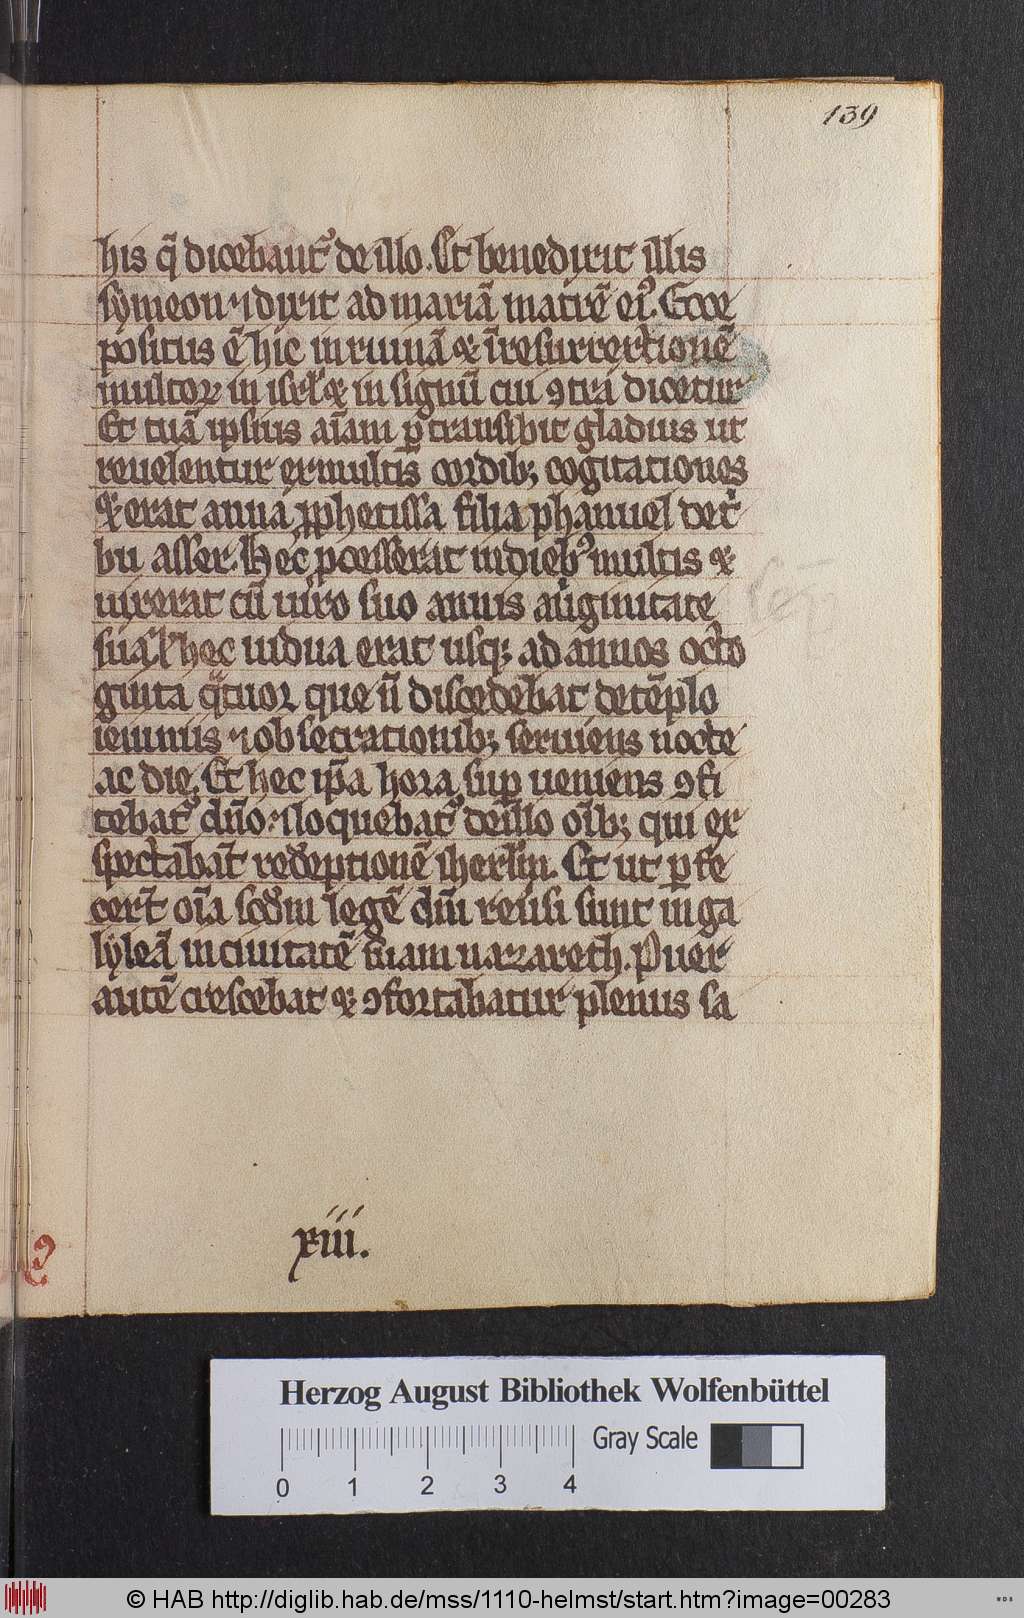 139
his q̃ dicebant᷑ de illo. Et benedixit illis
symeon ⁊ dixit ad mariã matrẽ eiꝰ. Ecce
positus ẽ hic in ruinã & ĩ resurrectionẽ
multoꝝ in isrl̃ & in signũ cui ꝯtra dicetur
Et tuã ipsius aĩam ꝑtransibit gladius ut
reuelentur ex multis cordibꝫ cogitationes
& erat anna ꝓphetissa filia phanuel de t̾
bu asser. Hec ꝓcesserat in diebꝰ multis &
uixerat cũ uiro suo annis a uirginitate
sua. hec uidua erat usqꝫ ad annos octo
ginta qͣtuor que ñ discedebat de tẽplo
ieiuniis ⁊ obsecrationibꝫ seruiens nocte
ac die. Et hec ip̃a hora suꝑ ueniens ꝯfi
tebat᷑ dño ⁊ loquebat᷑ de illo oĩbꝫ qui ex
spectabãt redẽptionẽ iherl̃m. Et ut ꝑfe
cert̃ oĩa scd̃m legẽ dñi reũsi sunt in ga
lyleã in ciuitatẽ suam nazareth. Puer
autẽ crescebat & ꝯfortabatur plenus sa
xiii.
Herzog August Bibliothek Wolfenbüttel
0 1 2 3 4 Gray Scale
© HAB http://diglib.hab.de/mss/1110-helmst/start.htm?image=00283